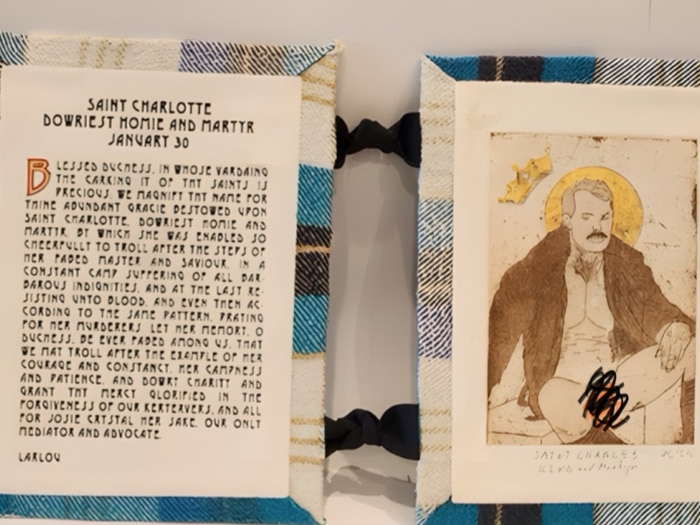 SAINT CHARLOTTE
DOWRIEST HOMIE AND MARTYR
JANUARY 30
BLESSED DUCHESS, IN WHOSE VARDAING
THE CARKING IT OF THY SAINTS IS
PRECIOUS, WE MAGNIFY THY NAME FOR
THINE ABUNDANT GRACIE BESTOWED UPON
SAINT CHARLOTTE, DOWRIEST HOMIE AND
MARTYR, BY WHICH SHE WAS ENABLED SO
CHEERFULLY TO TROLL AFTER THE STEPS OF
HER FABED MASTER AND SAVIOUR, IN A
CONSTANT CAMP SUFFERING OF ALL BAR-
BAROUS INDIGNITIES, AND AT THE LAST RE-
SISTING UNTO BLOOD, AND EVEN THEN AC-
CORDING TO THE SAME PATTERN, PRAYING
FOR HER MURDERERS. LET HER MEMORY, O
DUCHESS, BE EVER FABED AMONG US, THAT
WE MAY TROLL AFTER THE EXAMPLE OF HER
COURAGE AND CONSTANCY, HER CAMPNESS
AND PATIENCE, AND DOWRY CHARITY AND
GRANT THY MERCY GLORIFIED IN THE
FORGIVENESS OF OUR KERTERVERS, AND ALL
FOR JOSIE CRYSTAL HER SAKE, OUR ONLY
MEDIATOR AND ADVOCATE.
LARLOU
SAINT CHARLES
KING and Martyr